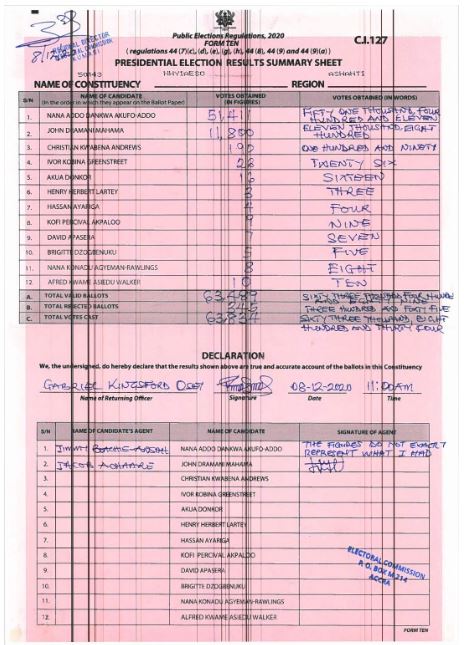 Public Elections Regulations, 2020
FORM TEN
C.I.127
( regulations 44 (7)(c), (d), (e), (g), (h), 44 (8), 44 (9) and 44 (9)(a) )
PRESIDENTIAL ELECTION RESULTS SUMMARY SHEET
NHYIAESO ASHANTI
NAME OF CONSTITUENCY REGION
S/N NAME OF CANDIDATE (In the order in which they appear on the Ballot Paper) VOTES OBTAINED (IN FIGURES) VOTES OBTAINED (IN WORDS)
1. NANA ADDO DANKWA AKUFO-ADDO 51,411 FIFTY ONE THOUSAND, FOUR HUNDRED AND ELEVEN
2. JOHN DRAMANI MAHAMA 11,800 ELEVEN THOUSAND, EIGHT HUNDRED
3. CHRISTIAN KWABENA ANDREWS 190 ONE HUNDRED AND NINETY
4. IVOR KOBINA GREENSTREET 26 TWENTY SIX
5. AKUA DONKOR 16 SIXTEEN
6. HENRY HERBERT LARTEY 3 THREE
7. HASSAN AYARIGA 4 FOUR
8. KOFI PERCIVAL AKPALOO 9 NINE
9. DAVID APASERA 7 SEVEN
10. BRIGITTE DZOGBENUKU 5 FIVE
11. NANA KONADU AGYEMAN-RAWLINGS 8 EIGHT
12 AFRED KWAME ASIEDU WALKER 10 TEN
A. TOTAL VALID BALLOTS 63,489 SIXTY THREE THOUSAND FOUR HUNDRED AND EIGHTY NINE
B. TOTAL REJECTED BALLOTS 345 THREE HUNDRED AND FORTY FIVE
C. TOTAL VOTES CAST 63,834 SIXTY THREE THOUSAND, EIGHT HUNDRED AND THIRTY FOUR
DECLARATION
We, the undersigned, do hereby declare that the results shown above are true and accurate account of the ballots in this Constituency
GABRIEL KINGSFORD OSEY 08-12-2020 11:00AM
Name of Returning Officer Signature Date Time
S/N NAME OF CANDIDATE'S AGENT NAME OF CANDIDATE SIGNATURE OF AGENT
1. JIMMY NANA ADDO DANKWA AKUFO-ADDO THE FIGURES DO NOT EXACTLY REPRESENT WHAT I HAD
2. JACOB JOHN DRAMANI MAHAMA
3. CHRISTIAN KWABENA ANDREWS
4. IVOR KOBINA GREENSTREET
5. AKUA DONKOR
6. HENRY HERBERT LARTEY
7. HASSAN AYARIGA
8. KOFI PERCIVAL AKPALOO
9. DAVID APASERA
10. BRIGITTE DZOGBENUKU
11. NANA KONADU AGYEMAN-RAWLINGS
12. ALFRED KWAME ASIEDU WALKER
ELECTORAL COMMISSION
P. O. BOX M.214
ACCRA
FORM TEN